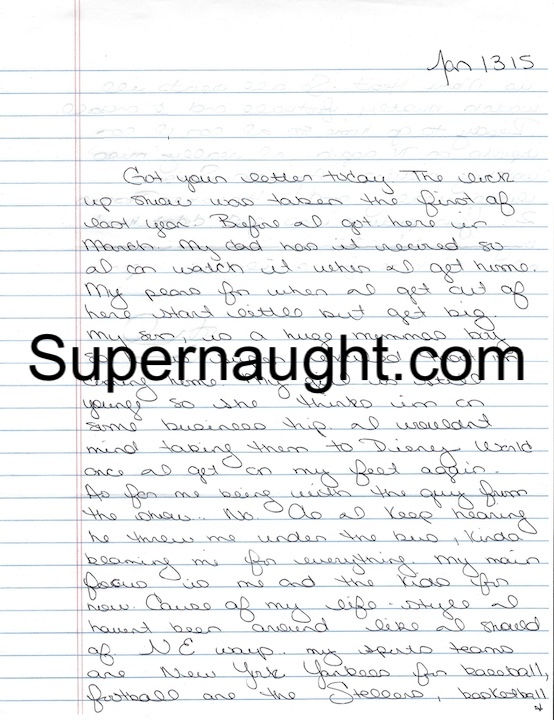 Jan 13 15
Got your letter today The lock
up show was taken the first of
last year. Before I got here in
March. My dad has it recored so
I can watch it when I get home.
My plans for when I get out of
here start little but get big.
my son, is a huge mommas boy
Supernaught.com
home my girl is still
young so she thinks im on
some business trip I wouldnt
mind taking them to Disney World
once I get on my feet again.
As for me being with the guy from
the show.. No. As I keep hearing
he threw me under the bus, kinda
blaming me for everything. My main
focus is me and the kids for
now. Cause of my life-style I
havent been around like I should
of NE ways. my sports teams
are New York Yankees for baseball,
football are the Stellers, basketball